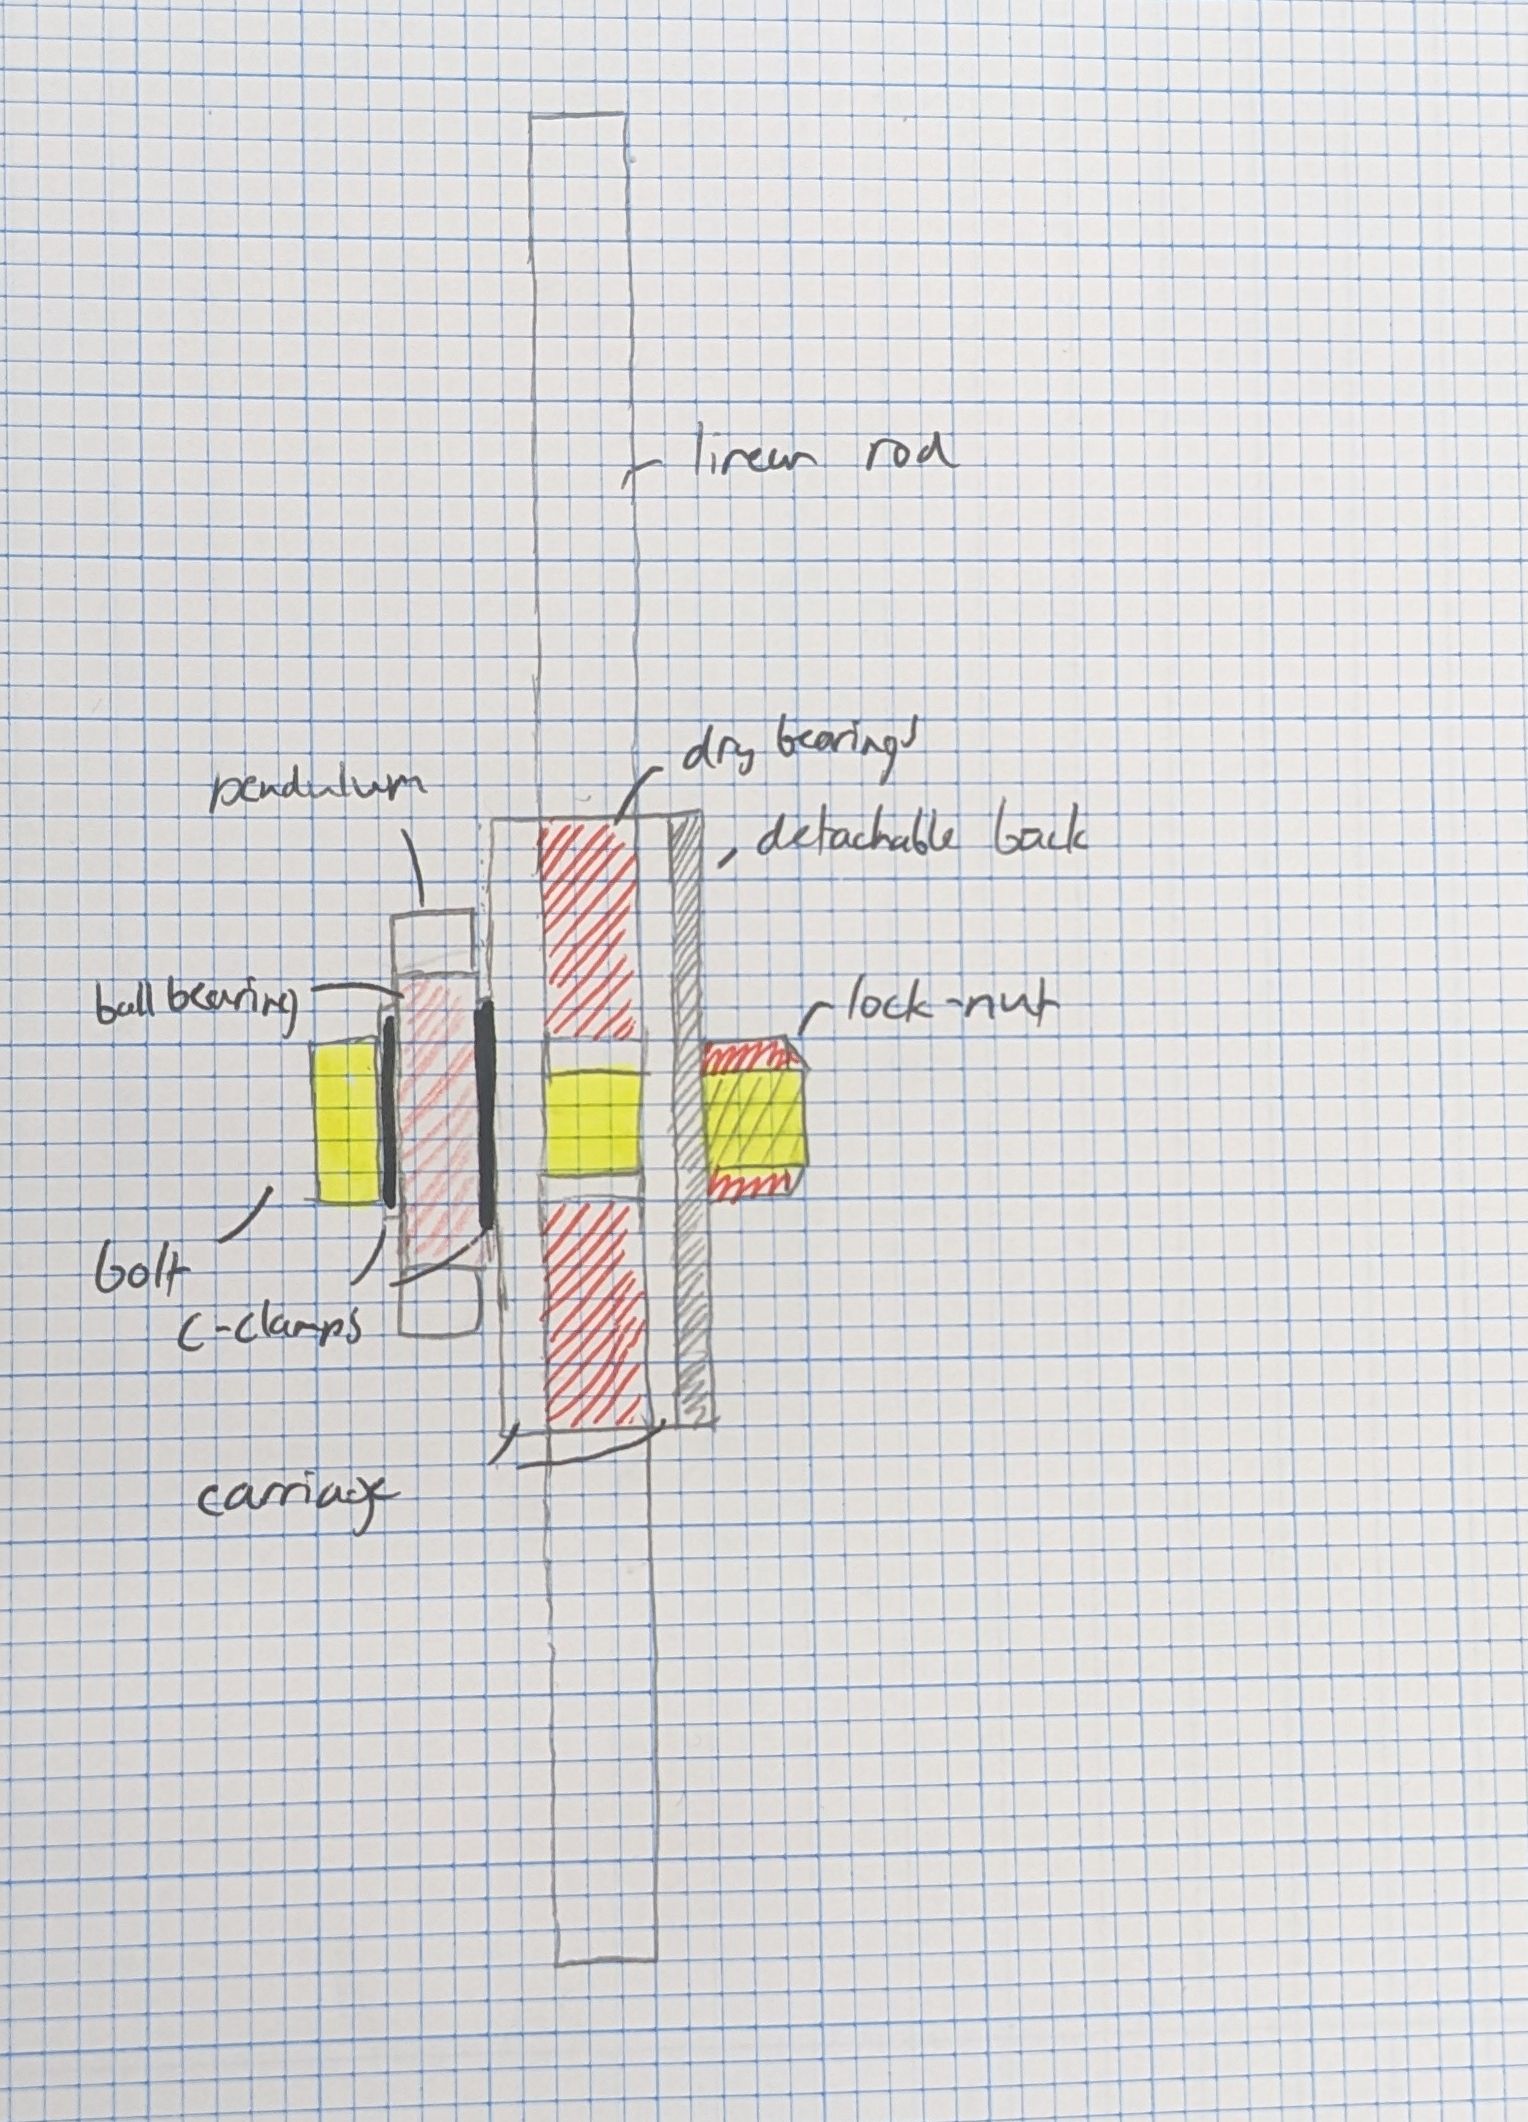 linear rod
dry bearings
pendulum
detachable back
ball bearing
lock-nut
bolt
C-clamps
carriage